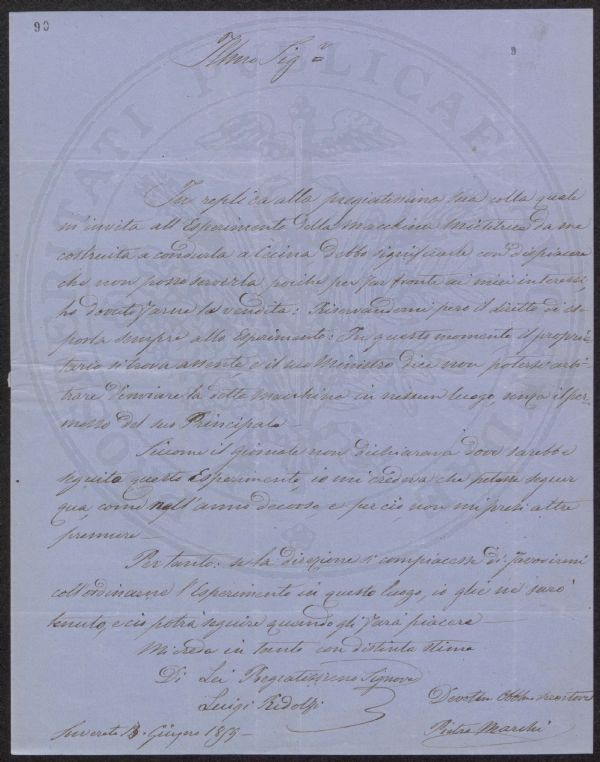 90
9
Illmo Sigre
In replica alla pregiatissima sua colla quale
m'invita all'Esperimento della macchina mietitrice da me
costruita a condurla a Cecina debbo significarle con dispiacere
che non posso servirla poiche per far fronte ai miei interessi
ho dovuto farne la vendita: Riservandomi pero il diritto di es
porla sempre allo Esperimento: In questo momento il proprie
tario si trova assente e il suo Ministro dice non potersi arbi
trare d'inviare la detta macchina in nessun luogo, senza il per
messo del suo Principale
Siccome il giornale non dichiarava dove sarebbe
seguito questo Esperimento, io mi credeva che potesse seguir
qua, come nell'anno decorso, e per ciò non mi presi altre
premure
Per tanto: se la direzione si compiacesse di favorirmi
coll'ordinarne l'Esperimento in questo luogo, io glie ne sarò
tenuto, e ciò potrà seguire quando gli farà piacere
Mi creda in tanto con distinta stima
Di Lei Pregiatissimo Signore
Luigi Ridolfi
Devotmo Obbmo servitore
Giugno 18
Pietro Marchi
PROSPERITATI PUBLICAE